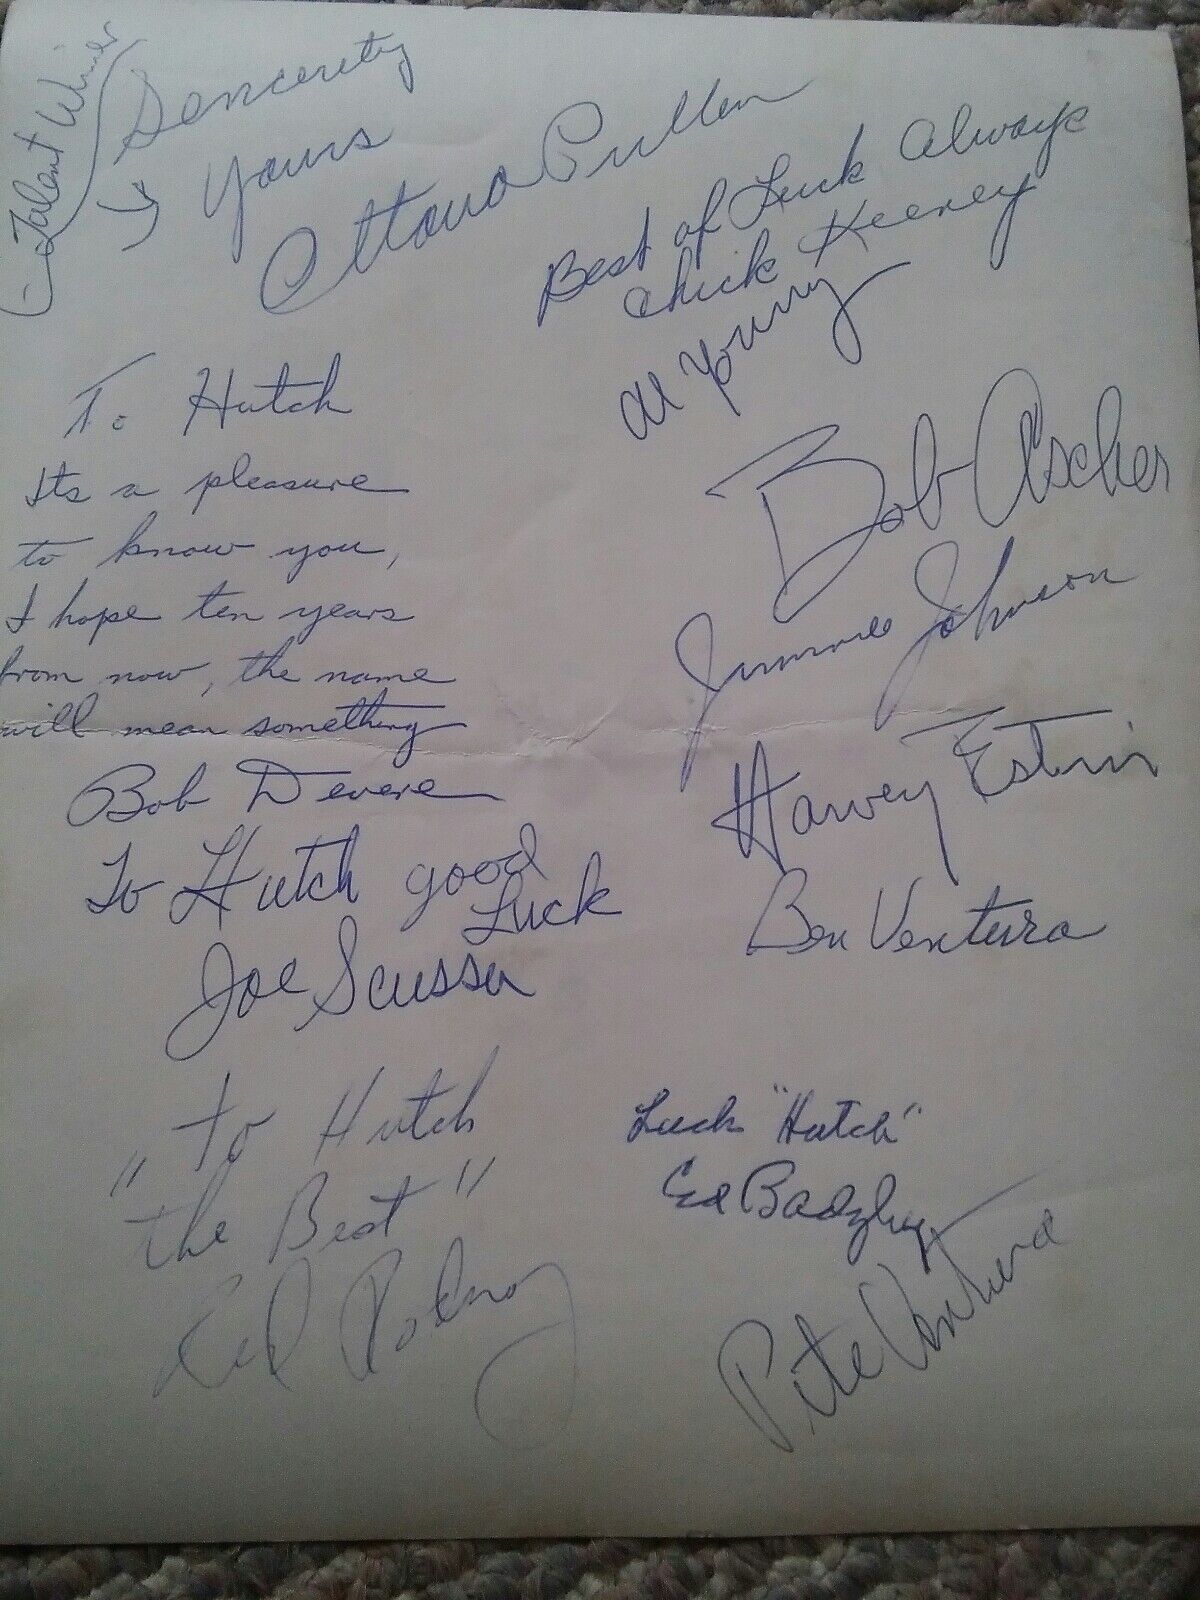 Talent Winner
Sencerity
Yours
Ottava Pullen
Best of Luck Always
Chick Keeney
Al Young
Bob Ascher
Jimmie Johnson
Harvey Estrin
Ben Ventura
To Hutch
Its a pleasure
to know you,
I hope ten years
from now, the name
will mean something
Bob Devere
To Hutch good
Luck
Joe
"To Hutch
the Best"
Ed
Luck "Hutch"
Ed
Pete Ventura